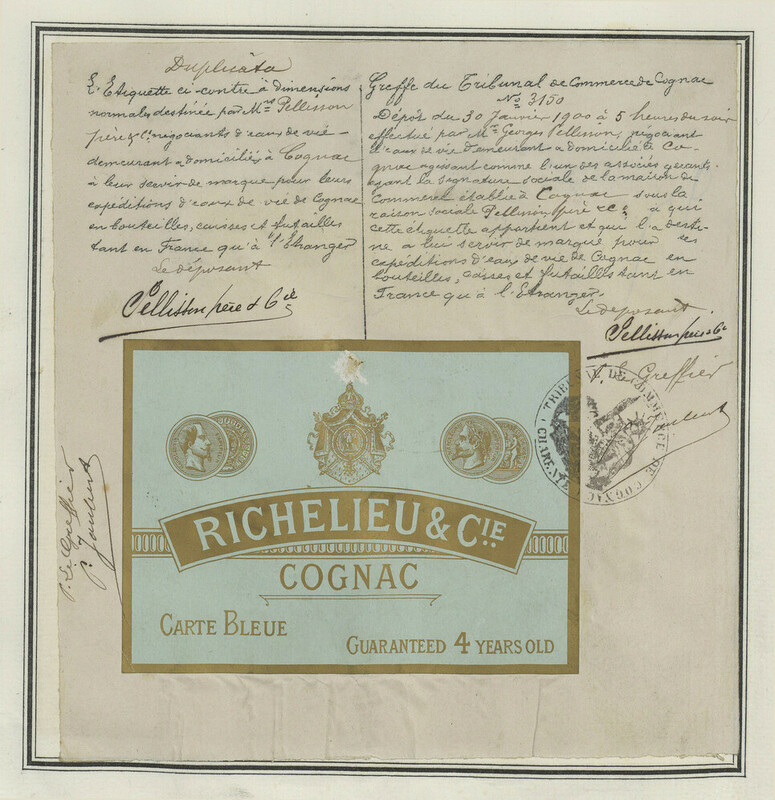 Duplicata
L'Etiquette ci-contre à dimensions
normales destinée par Mrs Pellisson
père & Cie négociants d'eaux de vie
demeurant & domiciliés à Cognac
à leur servir de marque pour leurs
expéditions d'eaux de vie de Cognac
en bouteilles, caisses et futailles
tant en France qu'à l'Etranger
Le déposant
Pellisson père & Cie
Greffe du Tribunal de Commerce de Cognac
No 3150
Dépôt du 30 Janvier 1900 à 5 heures du soir
effectué par Mr Georges Pellisson, négociant
d'eaux de vie demeurant & domicilié à Co-
gnac agissant comme l'un des associés gérants
ayant la signature sociale de la maison de
Commerce établie à Cognac sous la
raison sociale Pellisson père & Cie à qui
cette étiquette appartient et qui l'a desti-
née à lui servir de marque pour ses
expéditions d'eaux de vie de Cognac en
bouteilles, caisses et futailles tant en
France qu'à l'Etranger.
Le déposant
Pellisson père & Cie
P. Le Greffier
P. Le Greffier
TRIBUNAL DE COMMERCE DE COGNAC
CHARENTE
RICHELIEU & CIE
COGNAC
CARTE BLEUE
GUARANTEED 4 YEARS OLD